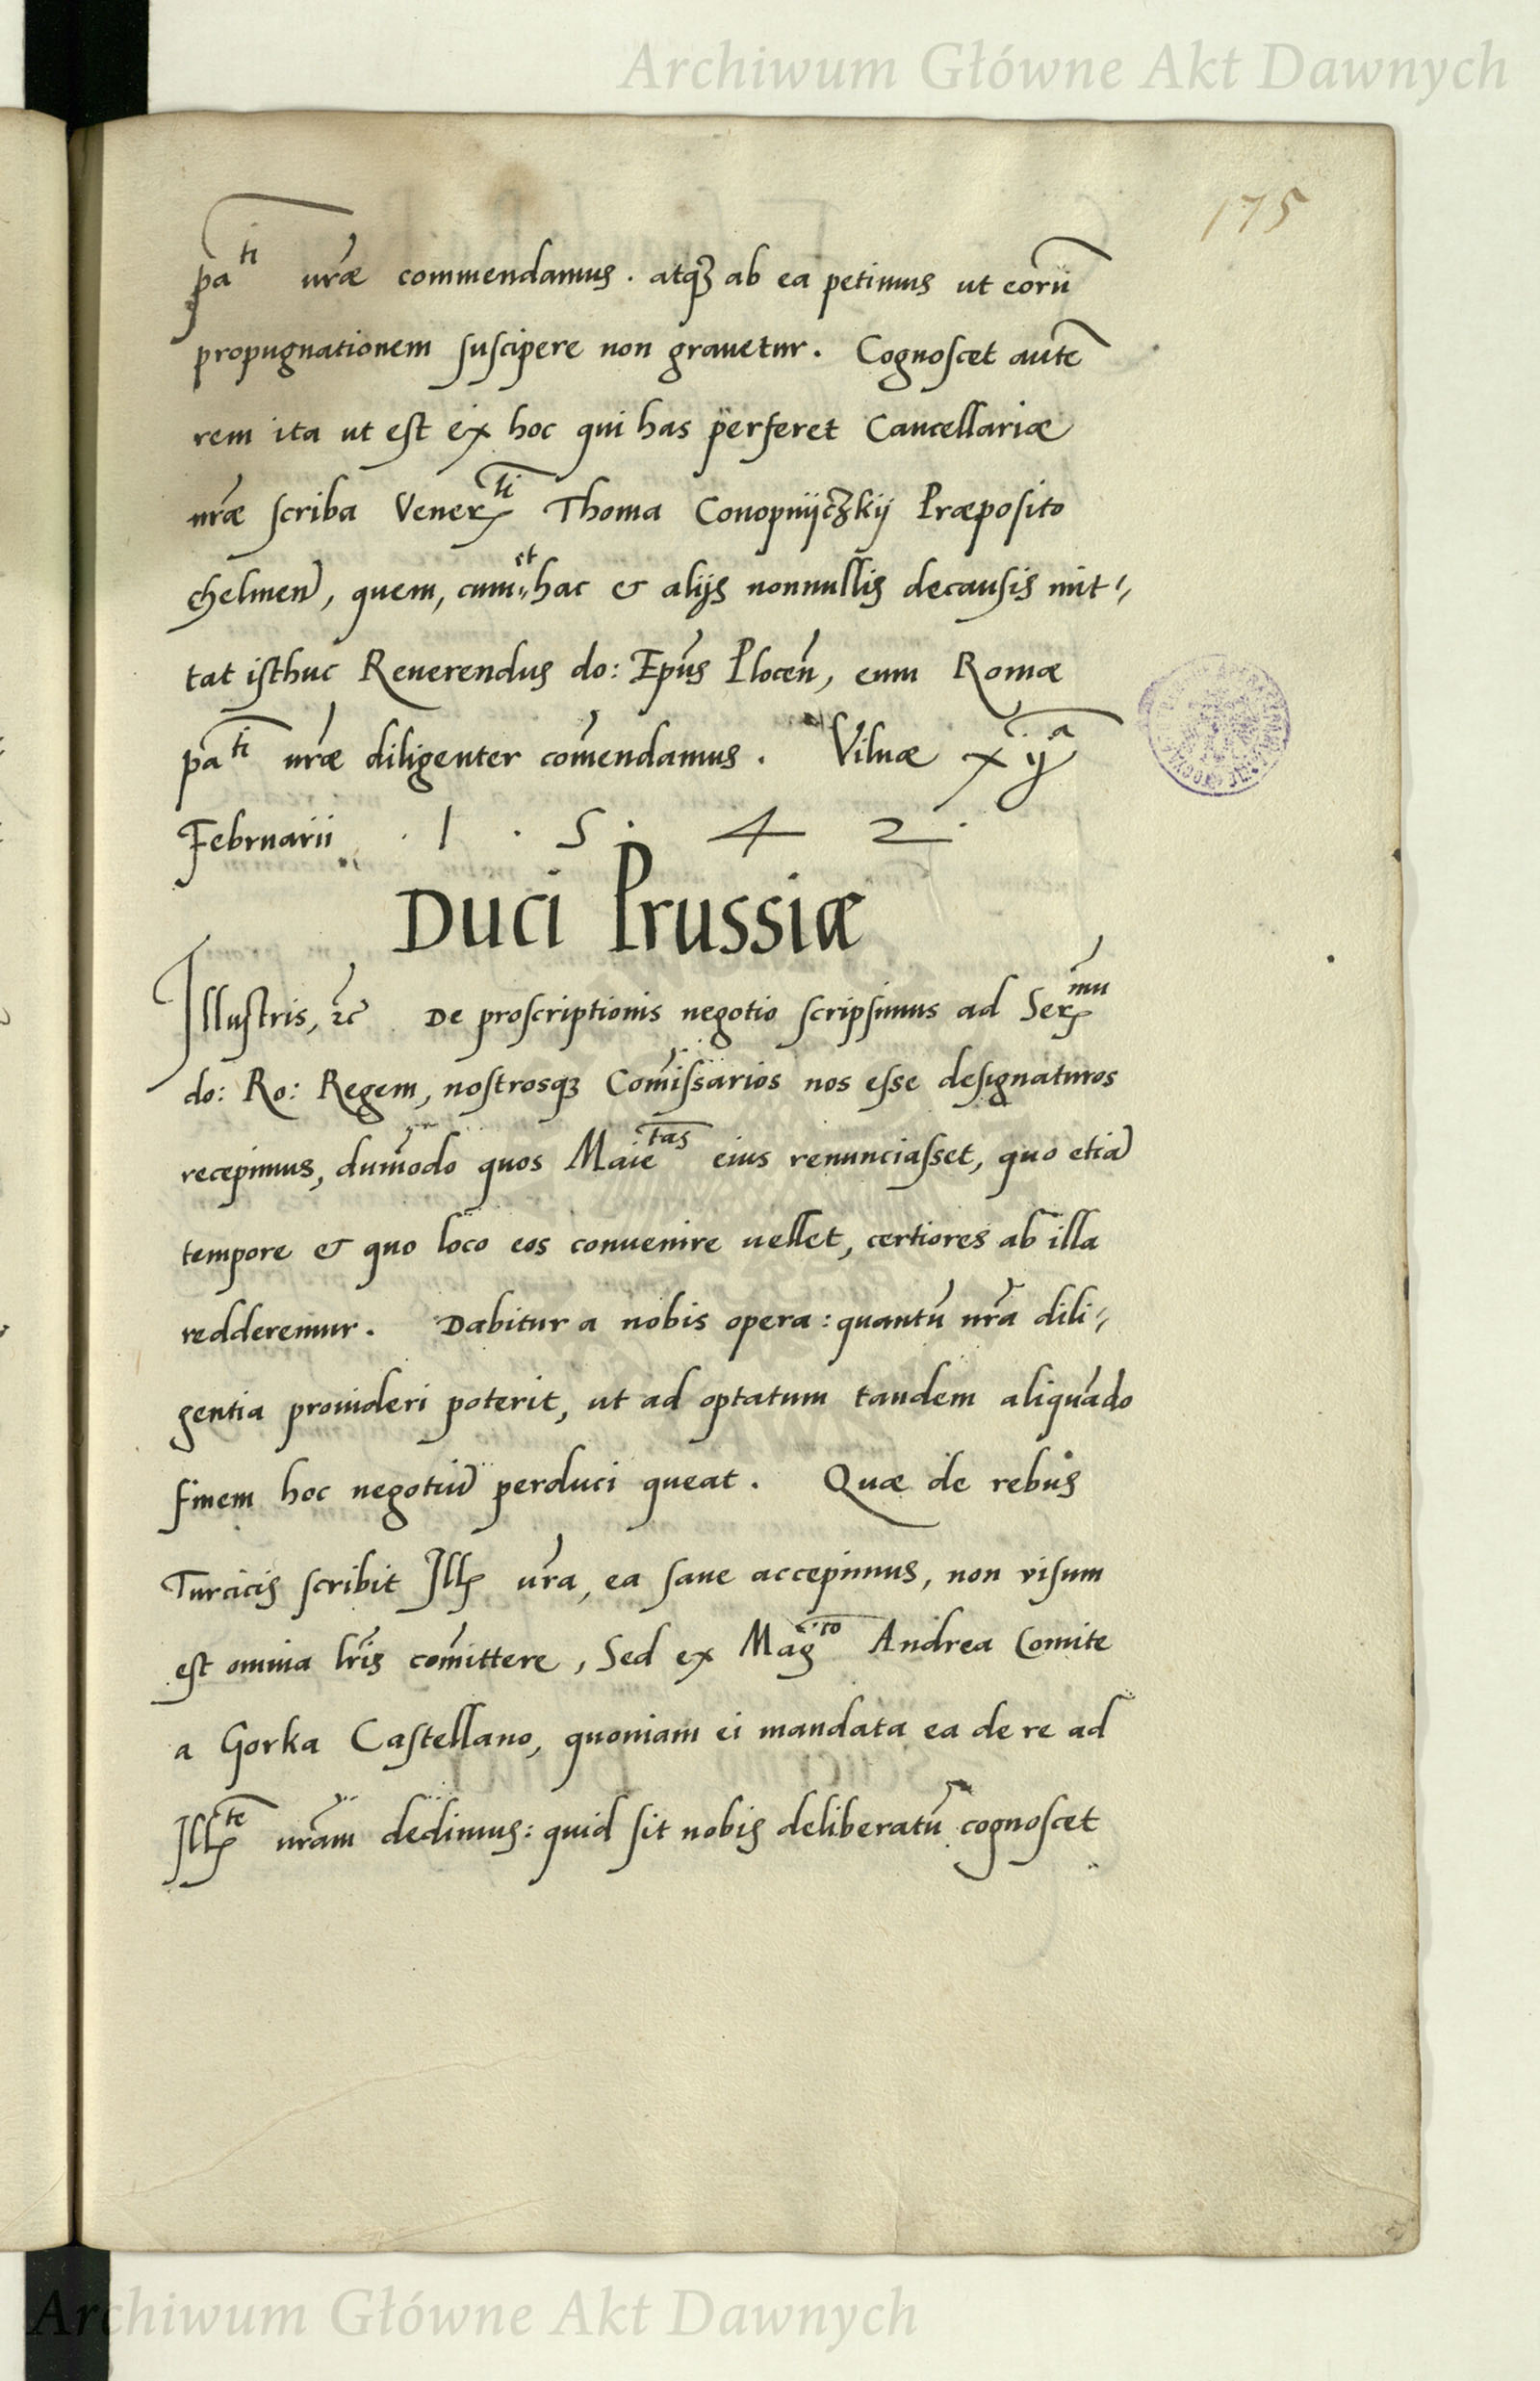 Archiwum Główne Akt Dawnych
175
pa^ti vrae commendamus. atq3 ab ea petimus ut eorū
propugnationem suscipere non grauetur. Cognoscet autē
rem ita ut est ex hoc qui has perferet Cancellariæ
nrae scriba Vener^li Thoma Conopnijczkij Præposito
chelmen, quem, cum et hac & alijs nonnullis de causis mit-
tat isthuc Reuerendus do: Epus Plocen, eum Romæ
pa^ti vrae diligenter comendamus. Vilnæ xij^a
Februarii .1.5.42.
Duci Prussiæ
Illustris, &c De proscriptionis negotio scripsimus ad Ser^mu
do: Ro: Regem, nostrosq3 Comissarios nos esse designaturos
recepimus, dumodo quos Maie^tas eius renunciasset, quo etiā
tempore & quo loco eos conuenire uellet, certiores ab illa
redderemur. Dabitur a nobis opera: quantū nra dili-
gentia prouideri poterit, ut ad optatum tandem aliquādo
finem hoc negotiū perduci queat. Quæ de rebus
Turcicis scribit Ill vra, ea sane accepimus, non visum
est omnia lris comittere, Sed ex Mag^co Andrea Comite
a Gorka Castellano, quoniam ei mandata ea de re ad
Ill^te vram dedimus: quid sit nobis deliberatū cognoscet
Archiwum Główne Akt Dawnych